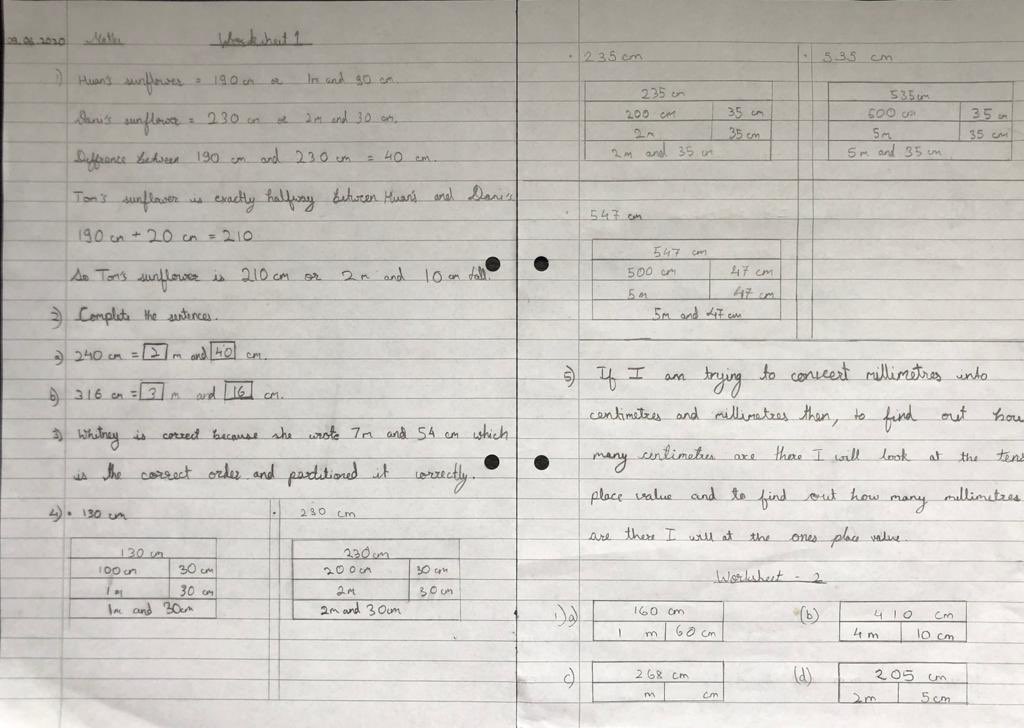 09.06.2020 Maths Worksheet 1
1) Huan's sunflower = 190 cm or 1m and 90 cm.
Dani's sunflower = 230 cm or 2m and 30 cm.
Diffrance between 190 cm and 230 cm = 40 cm.
Tom's sunflower is exactly halfway between Huan's and Dani's
190 cm + 20 cm = 210
So Tom's sunflower is 210 cm or 2 m and 10 cm tall.
2) Complete the sentences.
a) 240 cm = 2 m and 40 cm.
b) 316 cm = 3 m and 16 cm.
3) Whitney is correct because she wrote 7m and 54 cm which
is the correct order and partitioned it correctly.
4) • 130 cm
130 cm
100 cm 30 cm
1m 30 cm
1m and 30cm
• 230 cm
230 cm
200 cm 30 cm
2m 30cm
2m and 30cm
• 235 cm
235 cm
200 cm 35 cm
2m 35 cm
2m and 35 cm
• 535 cm
535cm
500 cm 35 cm
5m 35 cm
5m and 35 cm
• 547 cm
547 cm
500 cm 47 cm
5m 47 cm
5m and 47 cm
5) If I am trying to convert millimetres into
centimetres and millimetres then, to find out how
many centimetres are there I will look at the tens
place value and to find out how many millimetres
are there I will at the ones place value.
Worksheet - 2
1) a) 160 cm
1 m 60 cm
(b) 410 cm
4 m 10 cm
c) 268 cm
m cm
(d) 205 cm
2m 5cm